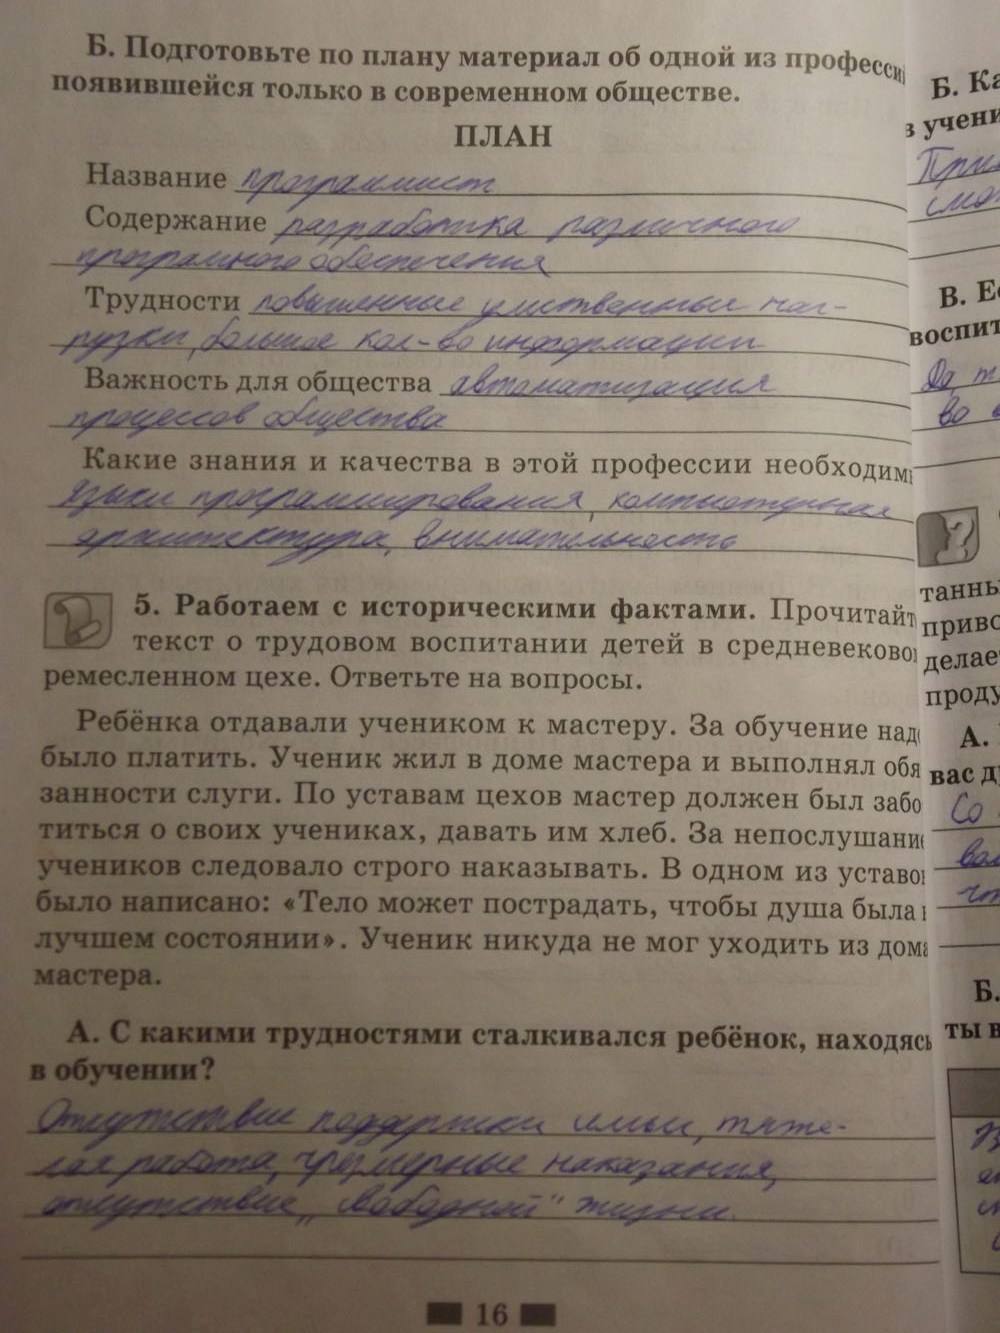 Б. Подготовьте по плану материал об одной из професси
появившейся только в современном обществе.
ПЛАН
Название программист
Содержание разработка различного
програмного обеспечения
Трудности повышенные умственные наг-
рузки, большое кол-во информации
Важность для общества автоматизация
процессов общества
Какие знания и качества в этой профессии необходимы
языки программирования, компьютерная
архитектура, внимательность
5. Работаем с историческими фактами. Прочитайт
текст о трудовом воспитании детей в средневеково
ремесленном цехе. Ответьте на вопросы.
Ребёнка отдавали учеником к мастеру. За обучение надо
было платить. Ученик жил в доме мастера и выполнял обя
занности слуги. По уставам цехов мастер должен был забо
титься о своих учениках, давать им хлеб. За непослушание
учеников следовало строго наказывать. В одном из уставов
было написано: «Тело может пострадать, чтобы душа была в
лучшем состоянии». Ученик никуда не мог уходить из дома
мастера.
А. С какими трудностями сталкивался ребёнок, находясь
в обучении?
Отсутствие поддержки семьи, тяже-
лая работа, чрезмерные наказания,
отсутствие „свободной" жизни.
16
Б. Ка
в учени
При
смот
В. Ес
воспит
Да т
во
танны
приво
делае
проду
А.
вас д
Со
вол
Б.
ты в